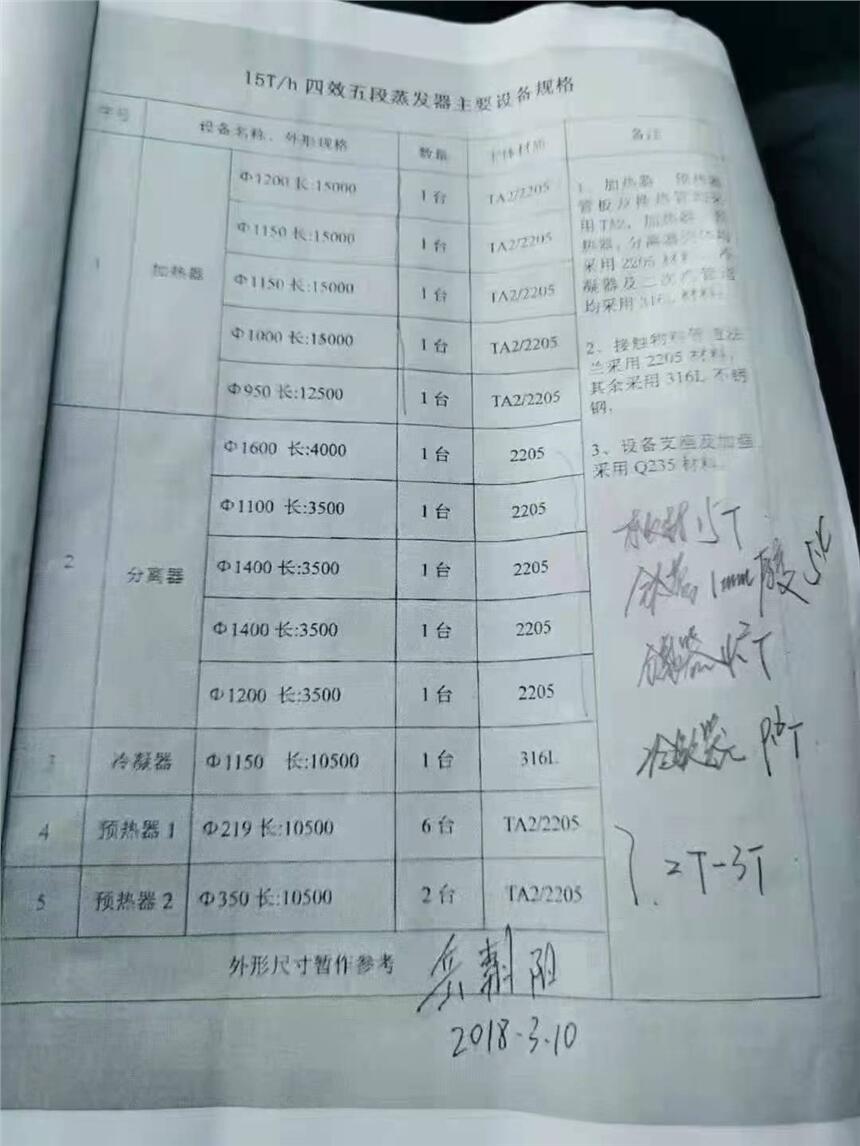 15T/h 四效五段蒸发器主要设备规格
序号 设备名称、外形规格 数量 主体材质 备注
1 加热器
Φ1200 长:15000 1台 TA2/2205
Φ1150 长:15000 1台 TA2/2205
Φ1150 长:15000 1台 TA2/2205
Φ1000 长:15000 1台 TA2/2205
Φ950 长:12500 1台 TA2/2205
2 分离器
Φ1600 长:4000 1台 2205
Φ1100 长:3500 1台 2205
Φ1400 长:3500 1台 2205
Φ1400 长:3500 1台 2205
Φ1200 长:3500 1台 2205
3 冷凝器 Φ1150 长:10500 1台 316L
4 预热器1 Φ219 长:10500 6台 TA2/2205
5 预热器2 Φ350 长:10500 2台 TA2/2205
外形尺寸暂作参考
1、加热器 预热器
管板及换热管均采
用TA2，加热器、预
热器，分离器壳体均
采用2205材料，冷
凝器及二次汽管道
均采用316L材料。
2、接触物料管道法
兰采用2205材料，
其余采用316L不锈
钢。
3、设备支座及加强
采用Q235材料。
15T
1mm
T
冷凝器
2T-3T
2018-3.10